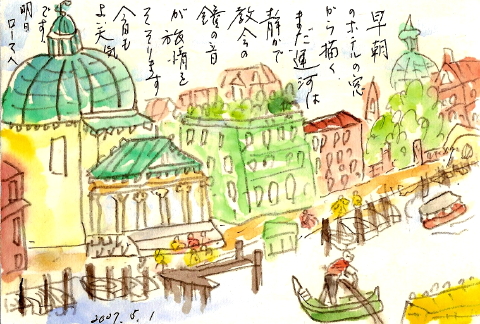 早朝
のホテルの窓
から描く
まだ運河は
静かで
教会の
鐘の音
が旅情を
そそります
今日も
よい天気
です。
明日
ローマへ
2007. 5. 1